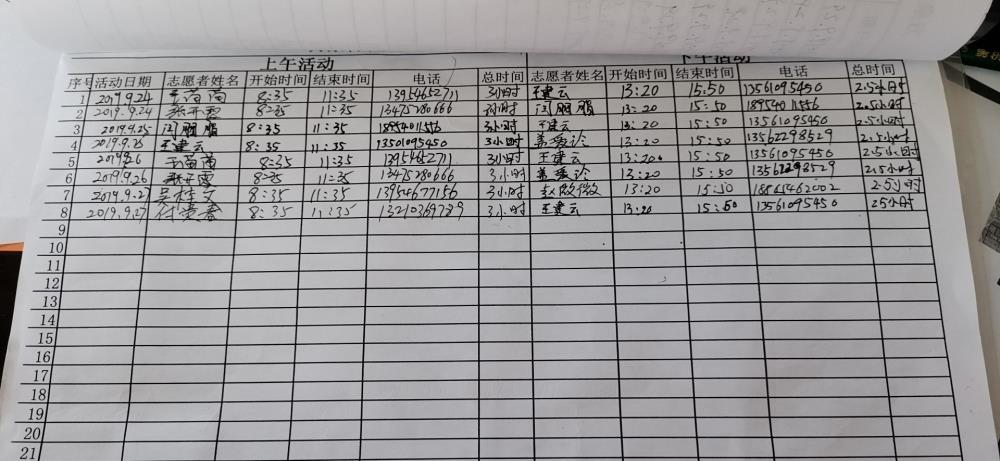 上午活动 下午活动
序号 活动日期 志愿者姓名 开始时间 结束时间 电话 总时间 志愿者姓名 开始时间 结束时间 电话 总时间
1 2019.9.24 8:35 11:35 13954652711 3小时 王建云 13:20 15:50 13561095450 2.5小时
2 2019.9.24 8:35 11:35 13475280666 3小时 闫鹏鹏 13:20 15:50 18954011556 2.5小时
3 2019.9.25 闫鹏鹏 8:35 11:35 18954011556 3小时 王建云 13:20 15:50 13561095450 2.5小时
4 2019.9.25 王建云 8:35 11:35 13501095450 3小时 13:20 15:50 13562298529 2.5小时
5 8:35 11:35 3小时 王建云 13:20 15:50 13561095450 2.5小时
6 2019.9.26 8:35 11:35 13475280666 3小时 13:20 15:50 13562298529 2.5小时
7 2019.9.27 吴桂文 8:35 11:35 13954677156 3小时 13:20 15:50 2.5小时
8 2019.9.27 8:35 11:35 13210369789 3小时 王建云 13:20 15:50 13561095450 2.5小时
9
10
11
12
13
14
15
16
17
18
19
20
21